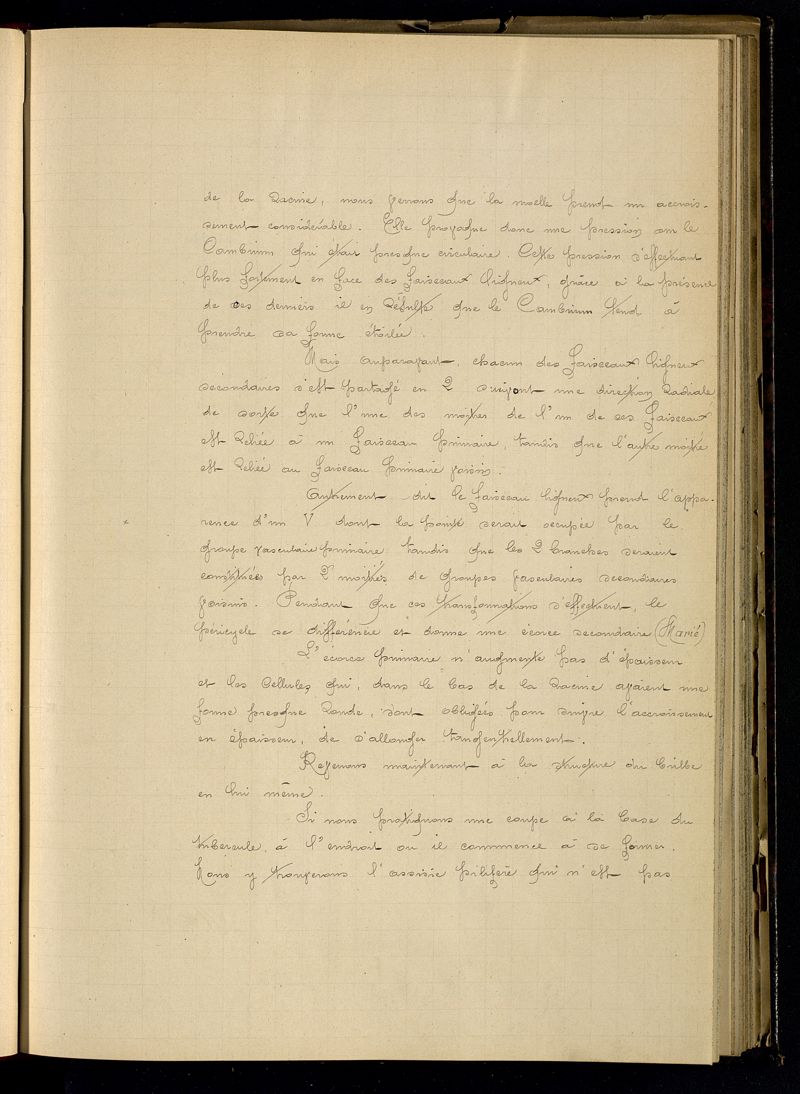 de la Racine, nous verrons que la moelle prend un accrois-
sement considérable. Elle propagne donc une pression sur le
Cambrium qui était presque circulaire. Cette pression s'effectuant
plus fortement en face des faisceaux ligneux, grâce à la présence
de ces derniers il en Résulte que le Cambrium tend à
prendre sa forme étoilée.
Mais auparavant, chacun des faisceaux ligneux
secondaires s'est partagé en 2 suivant une direction Radiale
de sorte que l'une des moities de l'un de ces faisceaux
est Reliée à un faisceau primaire, tandis que l'autre moitie
est Reliée au faisceau primaire voisin.
Autrement dit le faisceau ligneux prend l'appa-
rence d'un V dont la pointe serait occupée par le
groupe vasculaire primaire tandis que les 2 branches seraient
constituées par 2 moitiés de groupes vasculaires secondaires
voisins. Pendant que ces transformations s'effectuent, le
péricycle se différencie et donne une écorce secondaire (Marié)
L'écorce primaire n'augmente pas d'épaisseur
et les Cellules qui, dans le bas de la Racine avaient une
forme presque Ronde, sont obligées pour suivre l'accroissement
en épaisseur, de s'allonger tangentiellement.
Revenons maintenant à la structure du bulbe
en lui même.
Si nous pratiquons une coupe à la base du
tubercule, à l'endroit ou il commence à se former.
Nous y trouverons l'assisie pilifère qui n'est pas